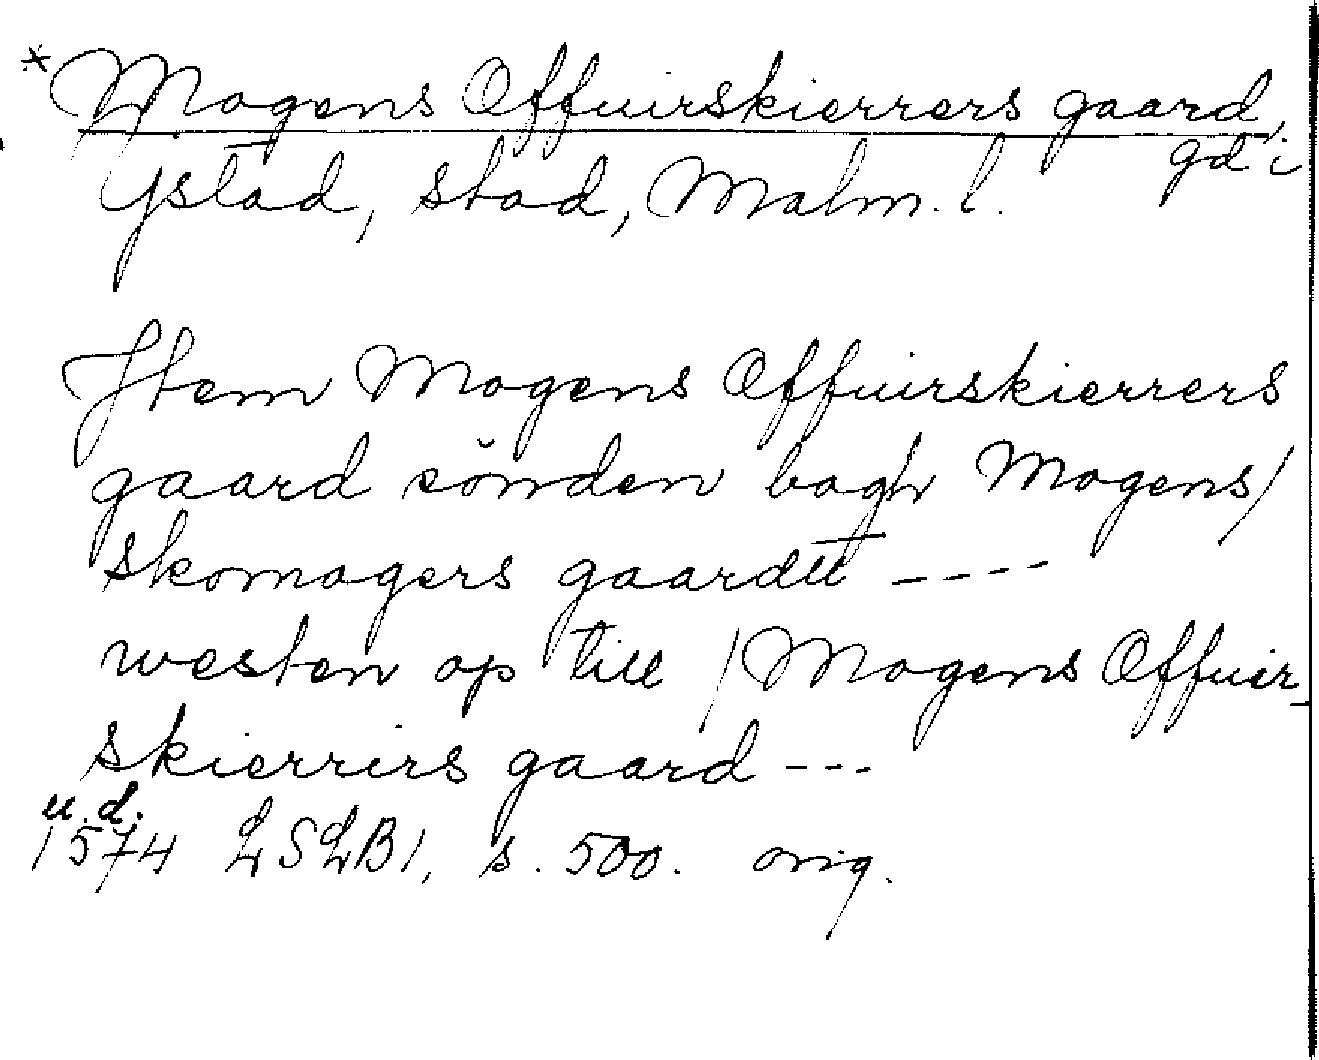 * Mogens Offuirskierrers gaard,
gd i
Ystad, stad, Malm. l.
Jtem Mogens Offuirskierrers
gaard sönden bagh Mogens/
Skomagers gaardtt ----
westen op till /Mogens Offuir-
skierrirs gaard ---
u. d.
1574 LSLB1, s. 500. orig.